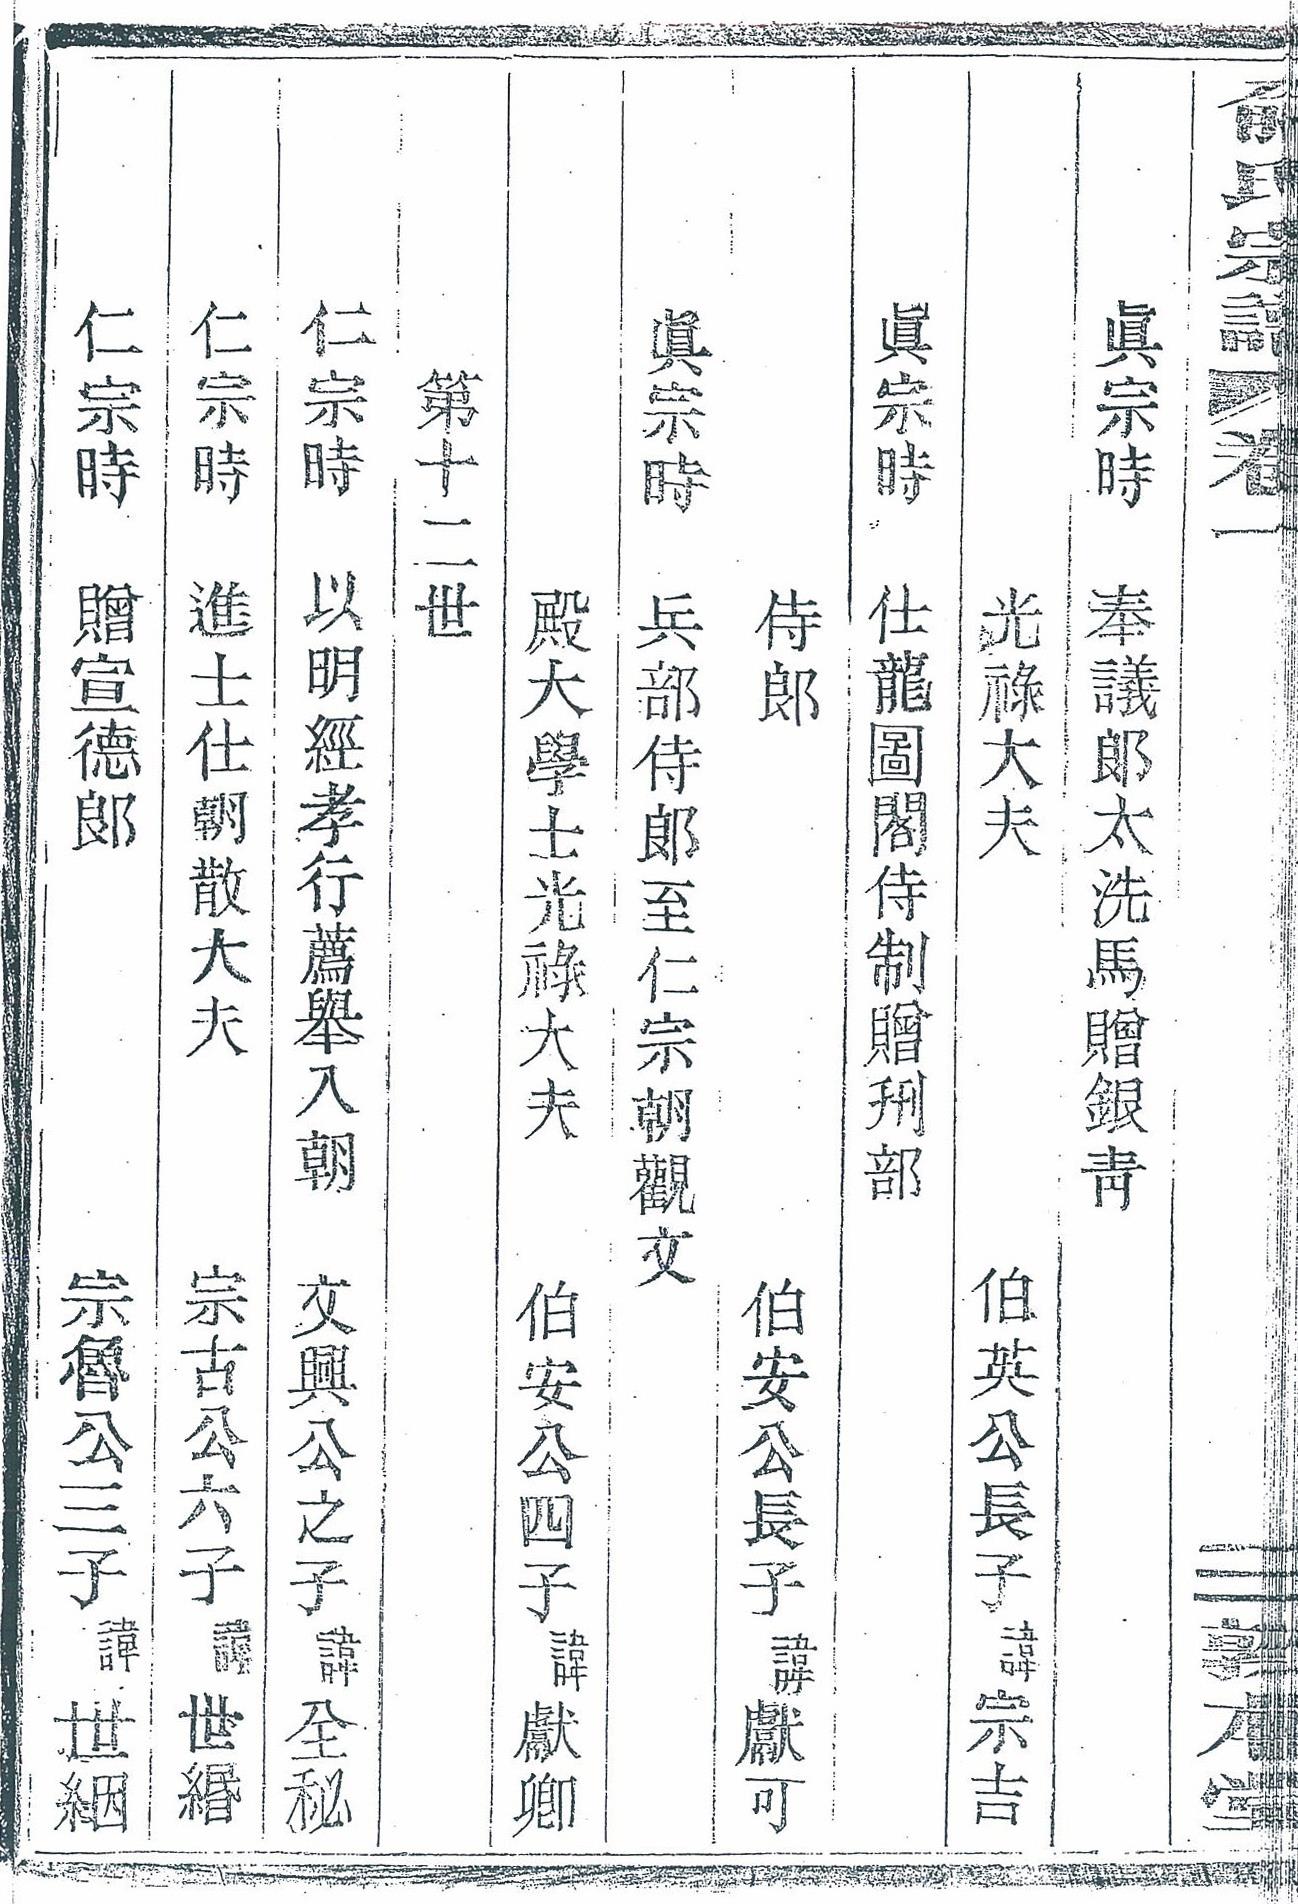 俞氏宗譜 卷一 三 敦本堂
眞宗時 奉議郎太洗馬贈銀青
光祿大夫 伯英公長子 諱 宗吉
眞宗時 仕龍圖閣侍制贈刑部
侍郎 伯安公長子 諱 獻可
眞宗時 兵部侍郎至仁宗朝觀文
殿大學士光祿大夫 伯安公四子 諱 獻卿
第十二世
仁宗時 以明經孝行薦舉入朝 文興公之子 諱 全秘
仁宗時 進士仕朝散大夫 宗古公六子 諱 世緡
仁宗時 贈宣德郎 宗魯公三子 諱 世絪